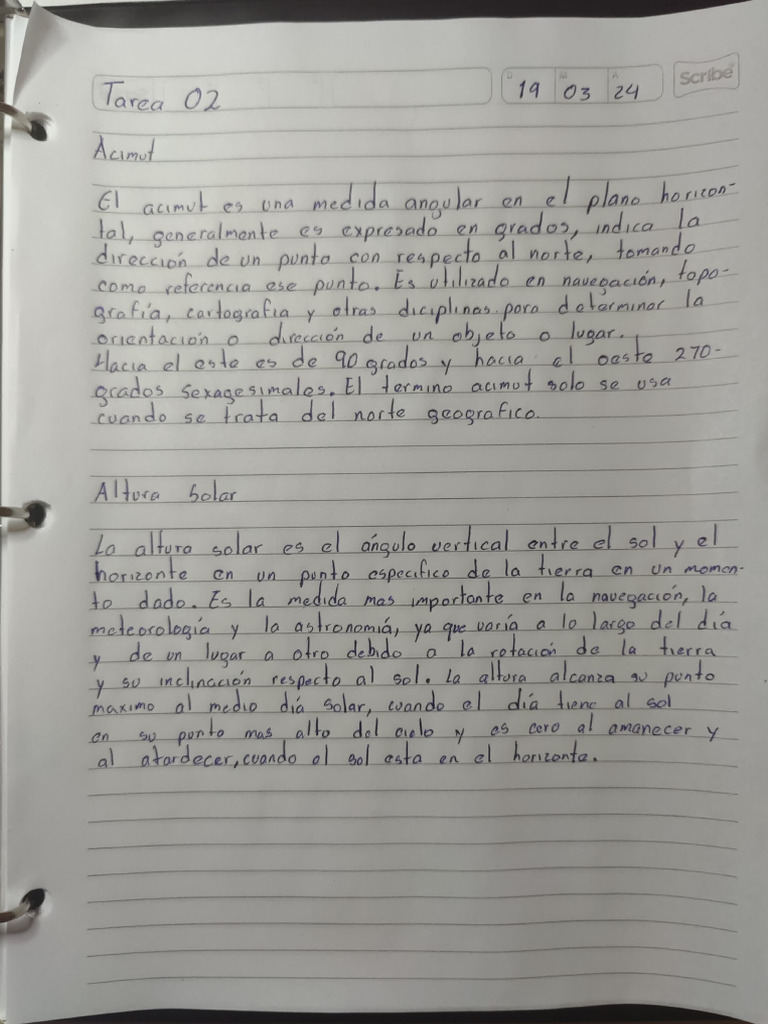 Tarea 02
D 19 M 03 A 24
Scribe
Acimut
El acimut es una medida angular en el plano horizon-
tal, generalmente es expresado en grados, indica la
dirección de un punto con respecto al norte, tomando
como referencia ese punto. Es utilizado en navegación, topo-
grafía, cartografia y otras diciplinas para determinar la
orientación o dirección de un objeto o lugar.
Hacia el este es de 90 grados y hacia el oeste 270-
grados sexagesimales. El termino acimut solo se usa
cuando se trata del norte geografico.
Altura Solar
La altura solar es el ángulo vertical entre el sol y el
horizonte en un punto especifico de la tierra en un momen-
to dado. Es la medida mas importante en la navegación, la
meteorología y la astronomiá, ya que varía a lo largo del día
y de un lugar a otro debido a la rotación de la tierra
y su inclinación respecto al sol. La altura alcanza su punto
maximo al medio día solar, cuando el día tiene al sol
en su punto mas alto del cielo y es cero al amanecer y
al atardecer, cuando el sol esta en el horizonte.